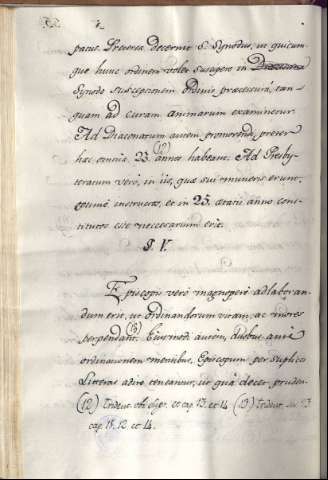 pacus. Preterea decernit S. Synodus, ut quicum-
que hunc ordinem volet suscipere in
Synodo susceptionem Ordinis praescriptā, tan-
quam ad curam animarum examinetur.
Ad Diaconatum autem promovendi, preter
haec omnia 23. annos habeant. (12) Ad Presby-
teratum verò, in iis, quae sui muneris erunt,
optimè instructos, et in 25. aetatis anno cons-
titutos esse necessarium erit.
§. V.
Episcopis verò magnoperè adlaboran-
dum erit, ut ordinandorum vitam, ac mores
perpendant. (13) Eiusmodi autem, duobus ante
ordinationem mensibus, Episcopum per suplices
Litteras adire teneantur, ut quā decet pruden-
(12) Trident. ubi supr. et cap. 13. et 14 (13) Trident. 23
cap. 11. 12 et 14.